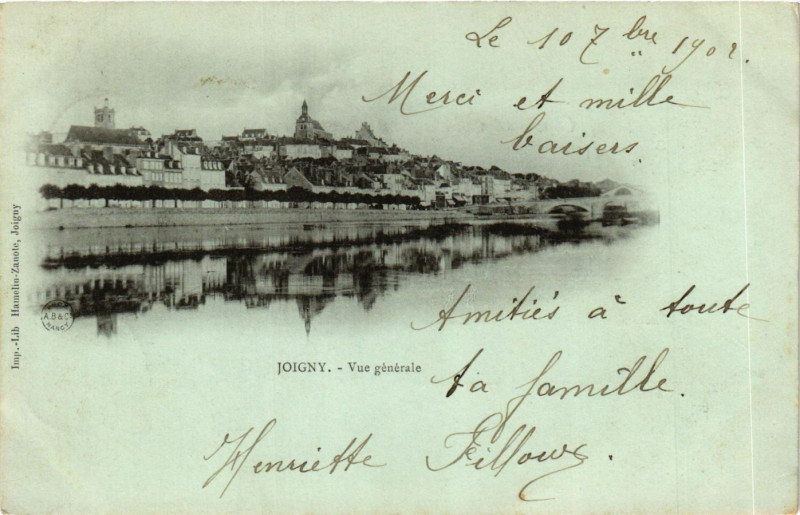 Le 10 7bre 1902.
Merci et mille
baisers.
Amitiés à toute
ta famille.
Henriette Filloux.
JOIGNY. - Vue générale
Imp.-Lib Hamelin-Zanote, Joigny
A.B & C